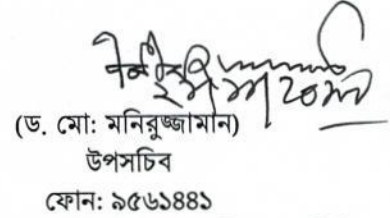 (ড. মো: মনিরুজ্জামান)
উপসচিব
ফোন: ৯৫৬১৪৪১